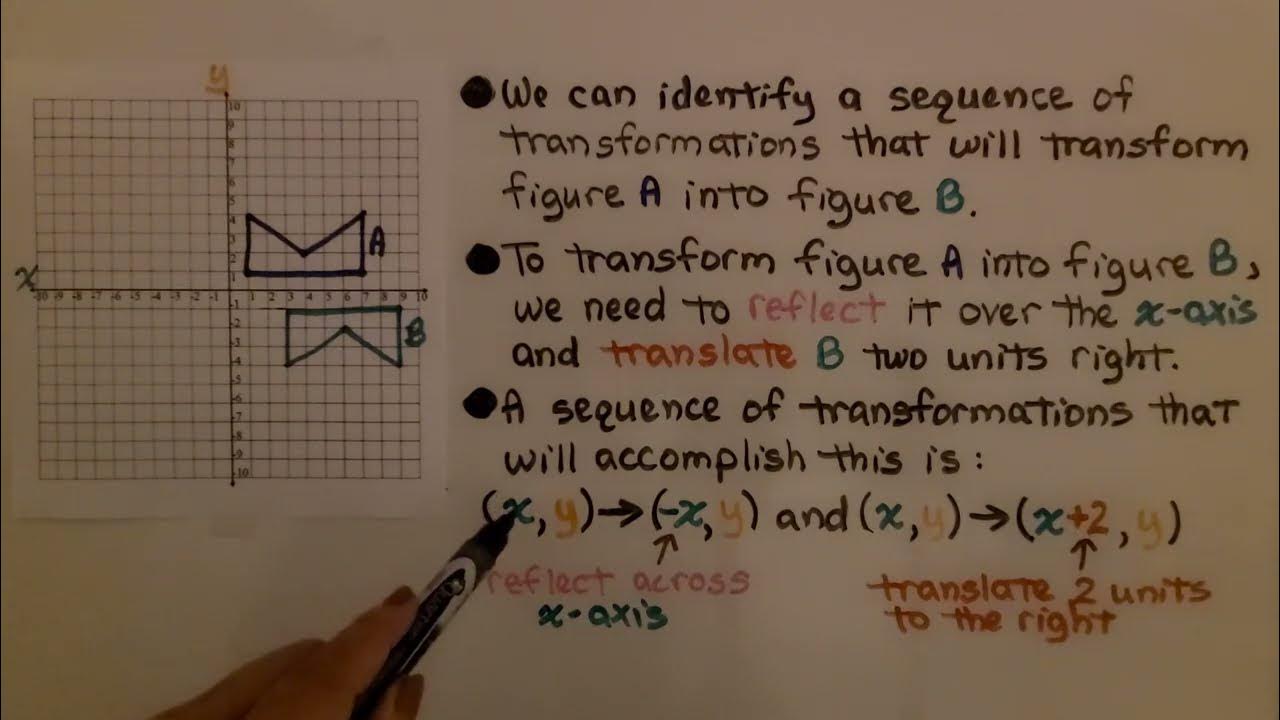 y
10
9
8
7
6
5
4
3
2
1
A
x
-10 -9 -8 -7 -6 -5 -4 -3 -2 -1
1 2 3 4 5 6 7 8 9 10
-1
-2
-3
-4
-5
-6
-7
-8
-9
-10
B
We can identify a sequence of
transformations that will transform
figure A into figure B.
To transform figure A into figure B,
we need to reflect it over the x-axis
and translate B two units right.
A sequence of transformations that
will accomplish this is:
(x, y) → (-x, y) and (x, y) → (x+2, y)
reflect across
x-axis
translate 2 units
to the right